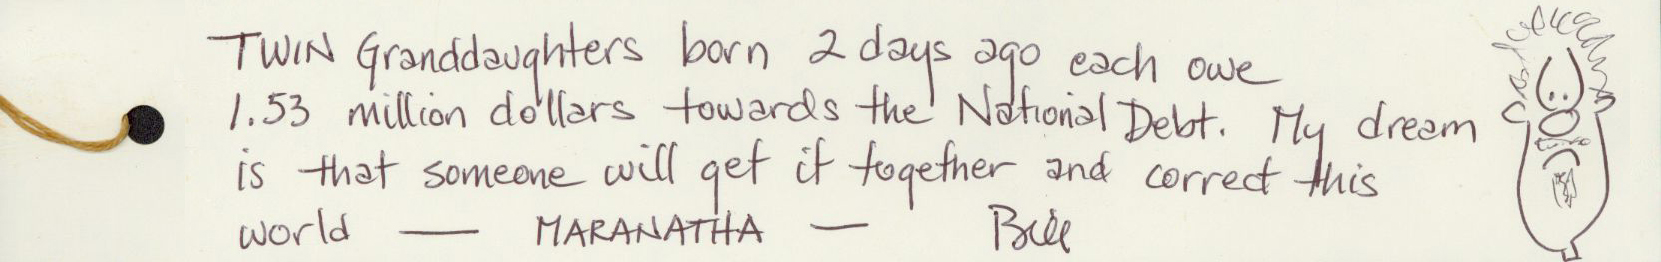 TWIN Granddaughters born 2 days ago each owe
1.53 million dollars towards the National Debt. My dream
is that someone will get it together and correct this
world — MARANATHA — Bill